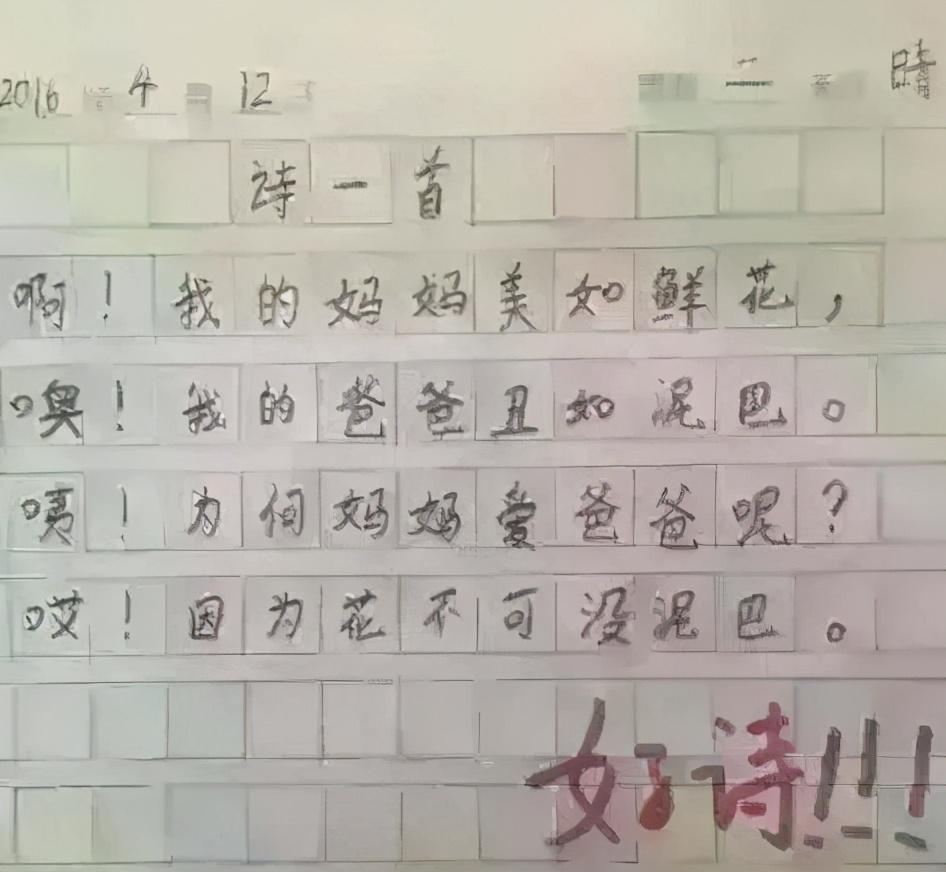 2016 4 12 晴
诗一首
啊！我的妈妈美如鲜花，
噢！我的爸爸丑如泥巴。
咦！为何妈妈爱爸爸呢？
哎！因为花不可没泥巴。
好诗!!!